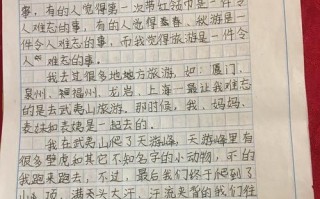 事，有的人觉得第一次节红领巾是一件
令人难忘的事，有的人觉得春春、秋游是一件
令人难志的事，而我觉得旅游是一件令
人难忘的事。
我去过很多地地方旅游，如：厦门、
泉州、福福州、龙岩、上海一最让我难志
的是去武夷山旅游。那时候，我、妈妈、
表妹和表姨是一起去的。
我在武夷山爬了天游峰，天游峰里有
很多壁虎和其它不知名字的小动物，不的
我跑来跑去，不过，最后我们终于爬到了
山顶，满天头大汗、汗流夹背的我们往